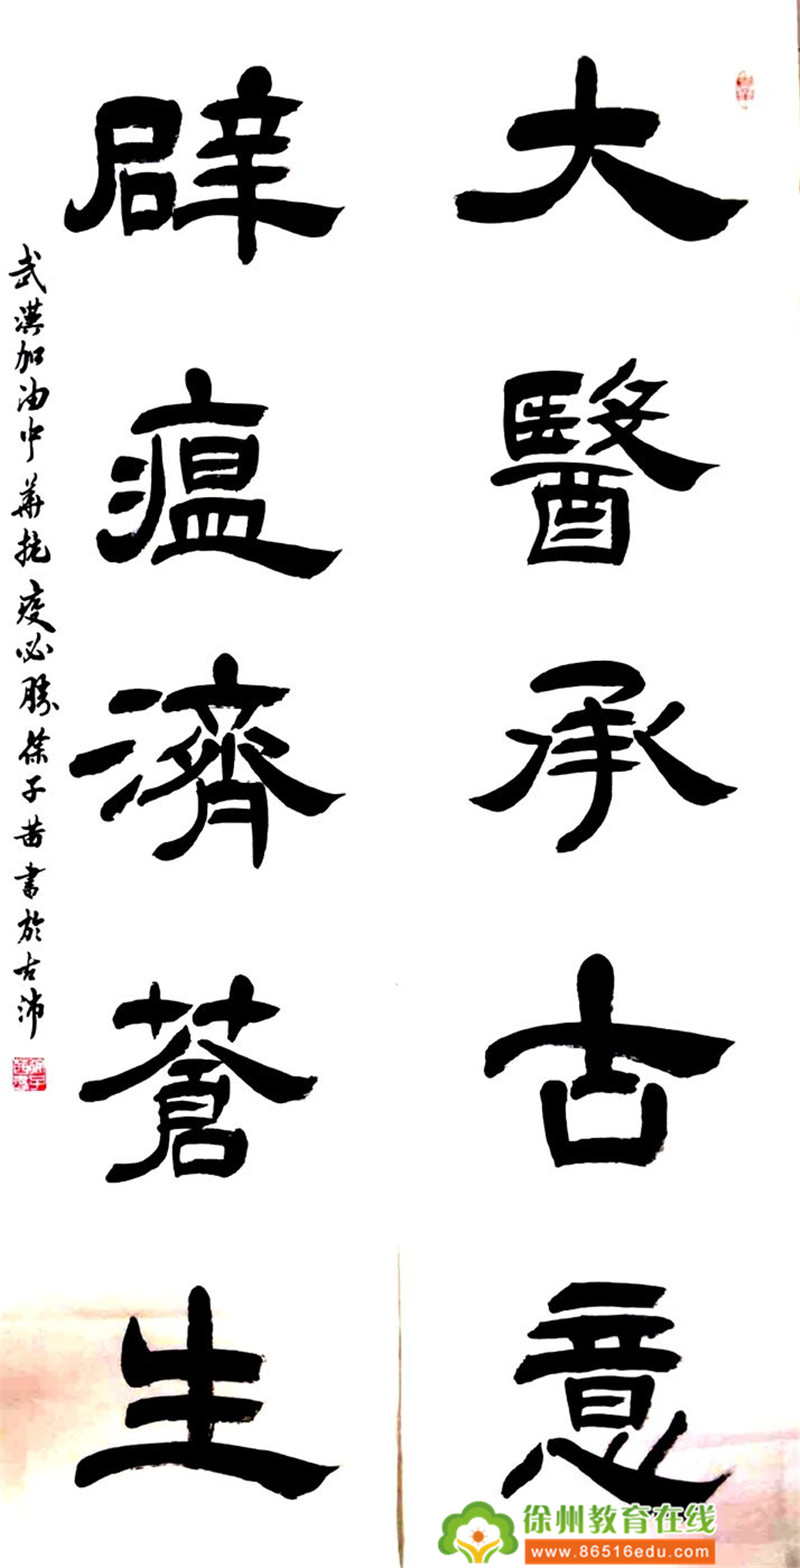 大醫承古意
辟瘟濟蒼生
武漢加油中華抗疫必勝徐子茜書於古沛
徐州教育在线
www.86516edu.com